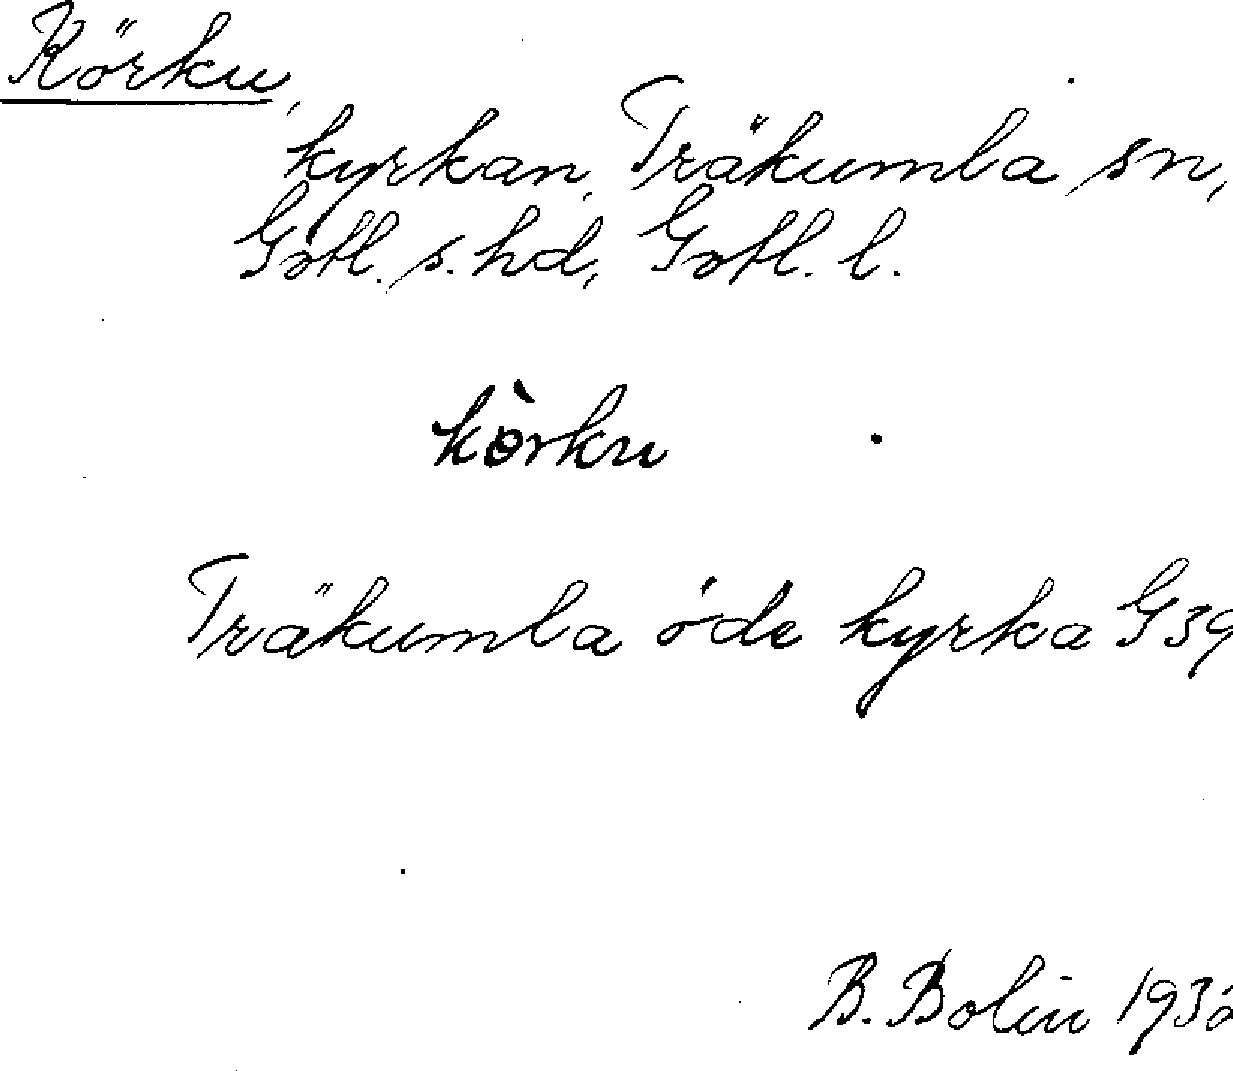 Körku,
kyrkan, Träkumla sn,
Gotl. s. hd, Gotl. l.
kòrku
Träkumla öde kyrka G39
B. Bolin 1932